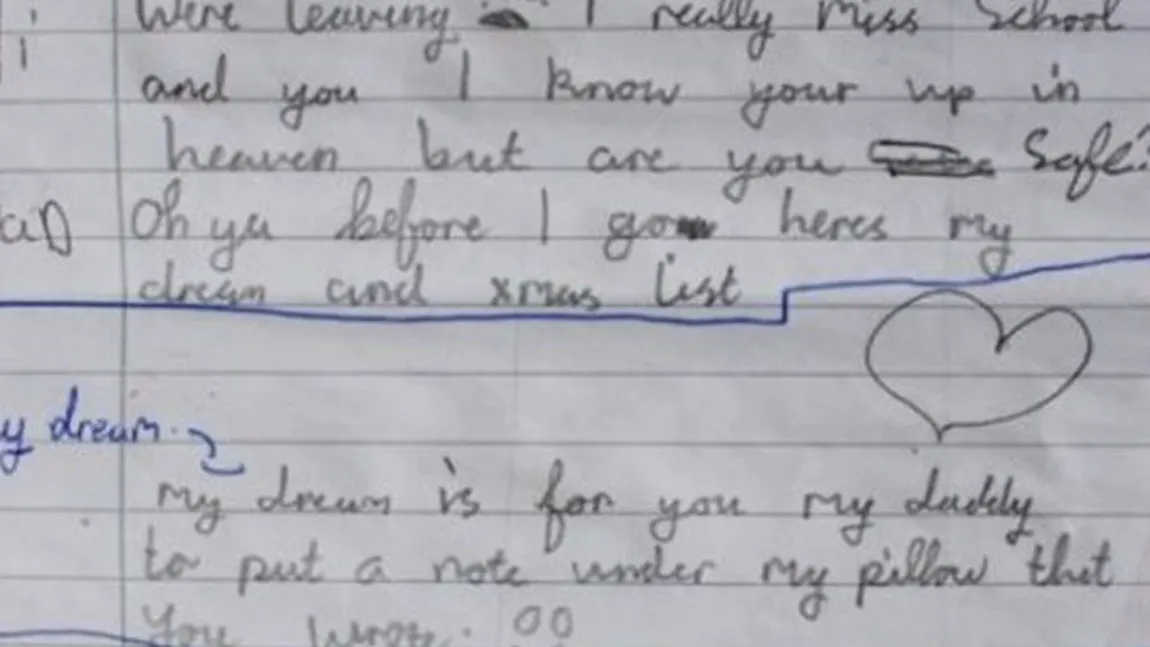 Were leaving I really miss School
and you I know your up in
heaven but are you Safe?
Oh ya before I go heres my
dream and xmas list
y dream.
My dream is for you my daddy
to put a note under my pillow that
you wrote.